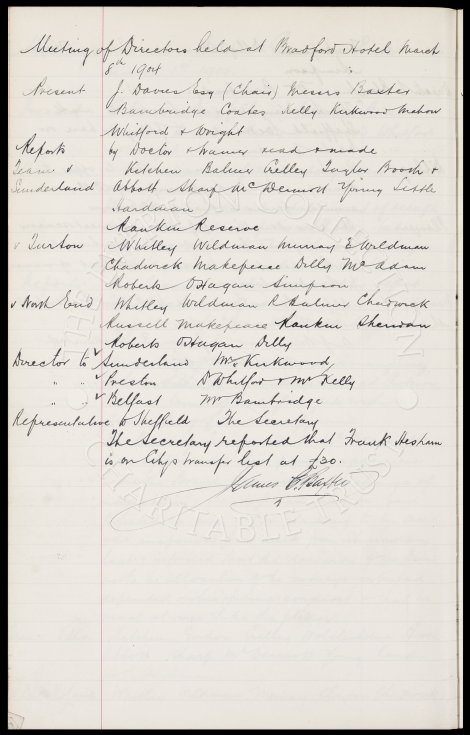 Meeting of Directors held at Bradford Hotel March
8th 1904
Present J. Davies Esq (Chair) Messrs Baxter
Bainbridge Coates Kelly Kirkwood Mahon
Whitford & Wright
Reports by Doctor & Trainer read & made
Team v Kitchen Balmer Crelley Taylor Booth &
Sunderland Abbott Sharp McDermott Young Settle
Hardman
Rankin Reserve
v Turton Whitley Wildman Murray E Wildman
Chadwick Makepeace Dilly McAdam
Roberts O'Hagan Simpson
v North End Whitley Wildman R Balmer Chadwick
Russell Makepeace Rankin Sheridan
Roberts O'Hagan Dilly
Director to Sunderland Mr Kirkwood
" " Preston Dr Whitford & Mr Kelly
" " Belfast Mr Bainbridge
Representative to Sheffield The Secretary
The Secretary reported that Frank Hesham
is on City's transfer list at £30.
James C. Baxter
THE EVERTON COLLECTION
CHARITABLE TRUST